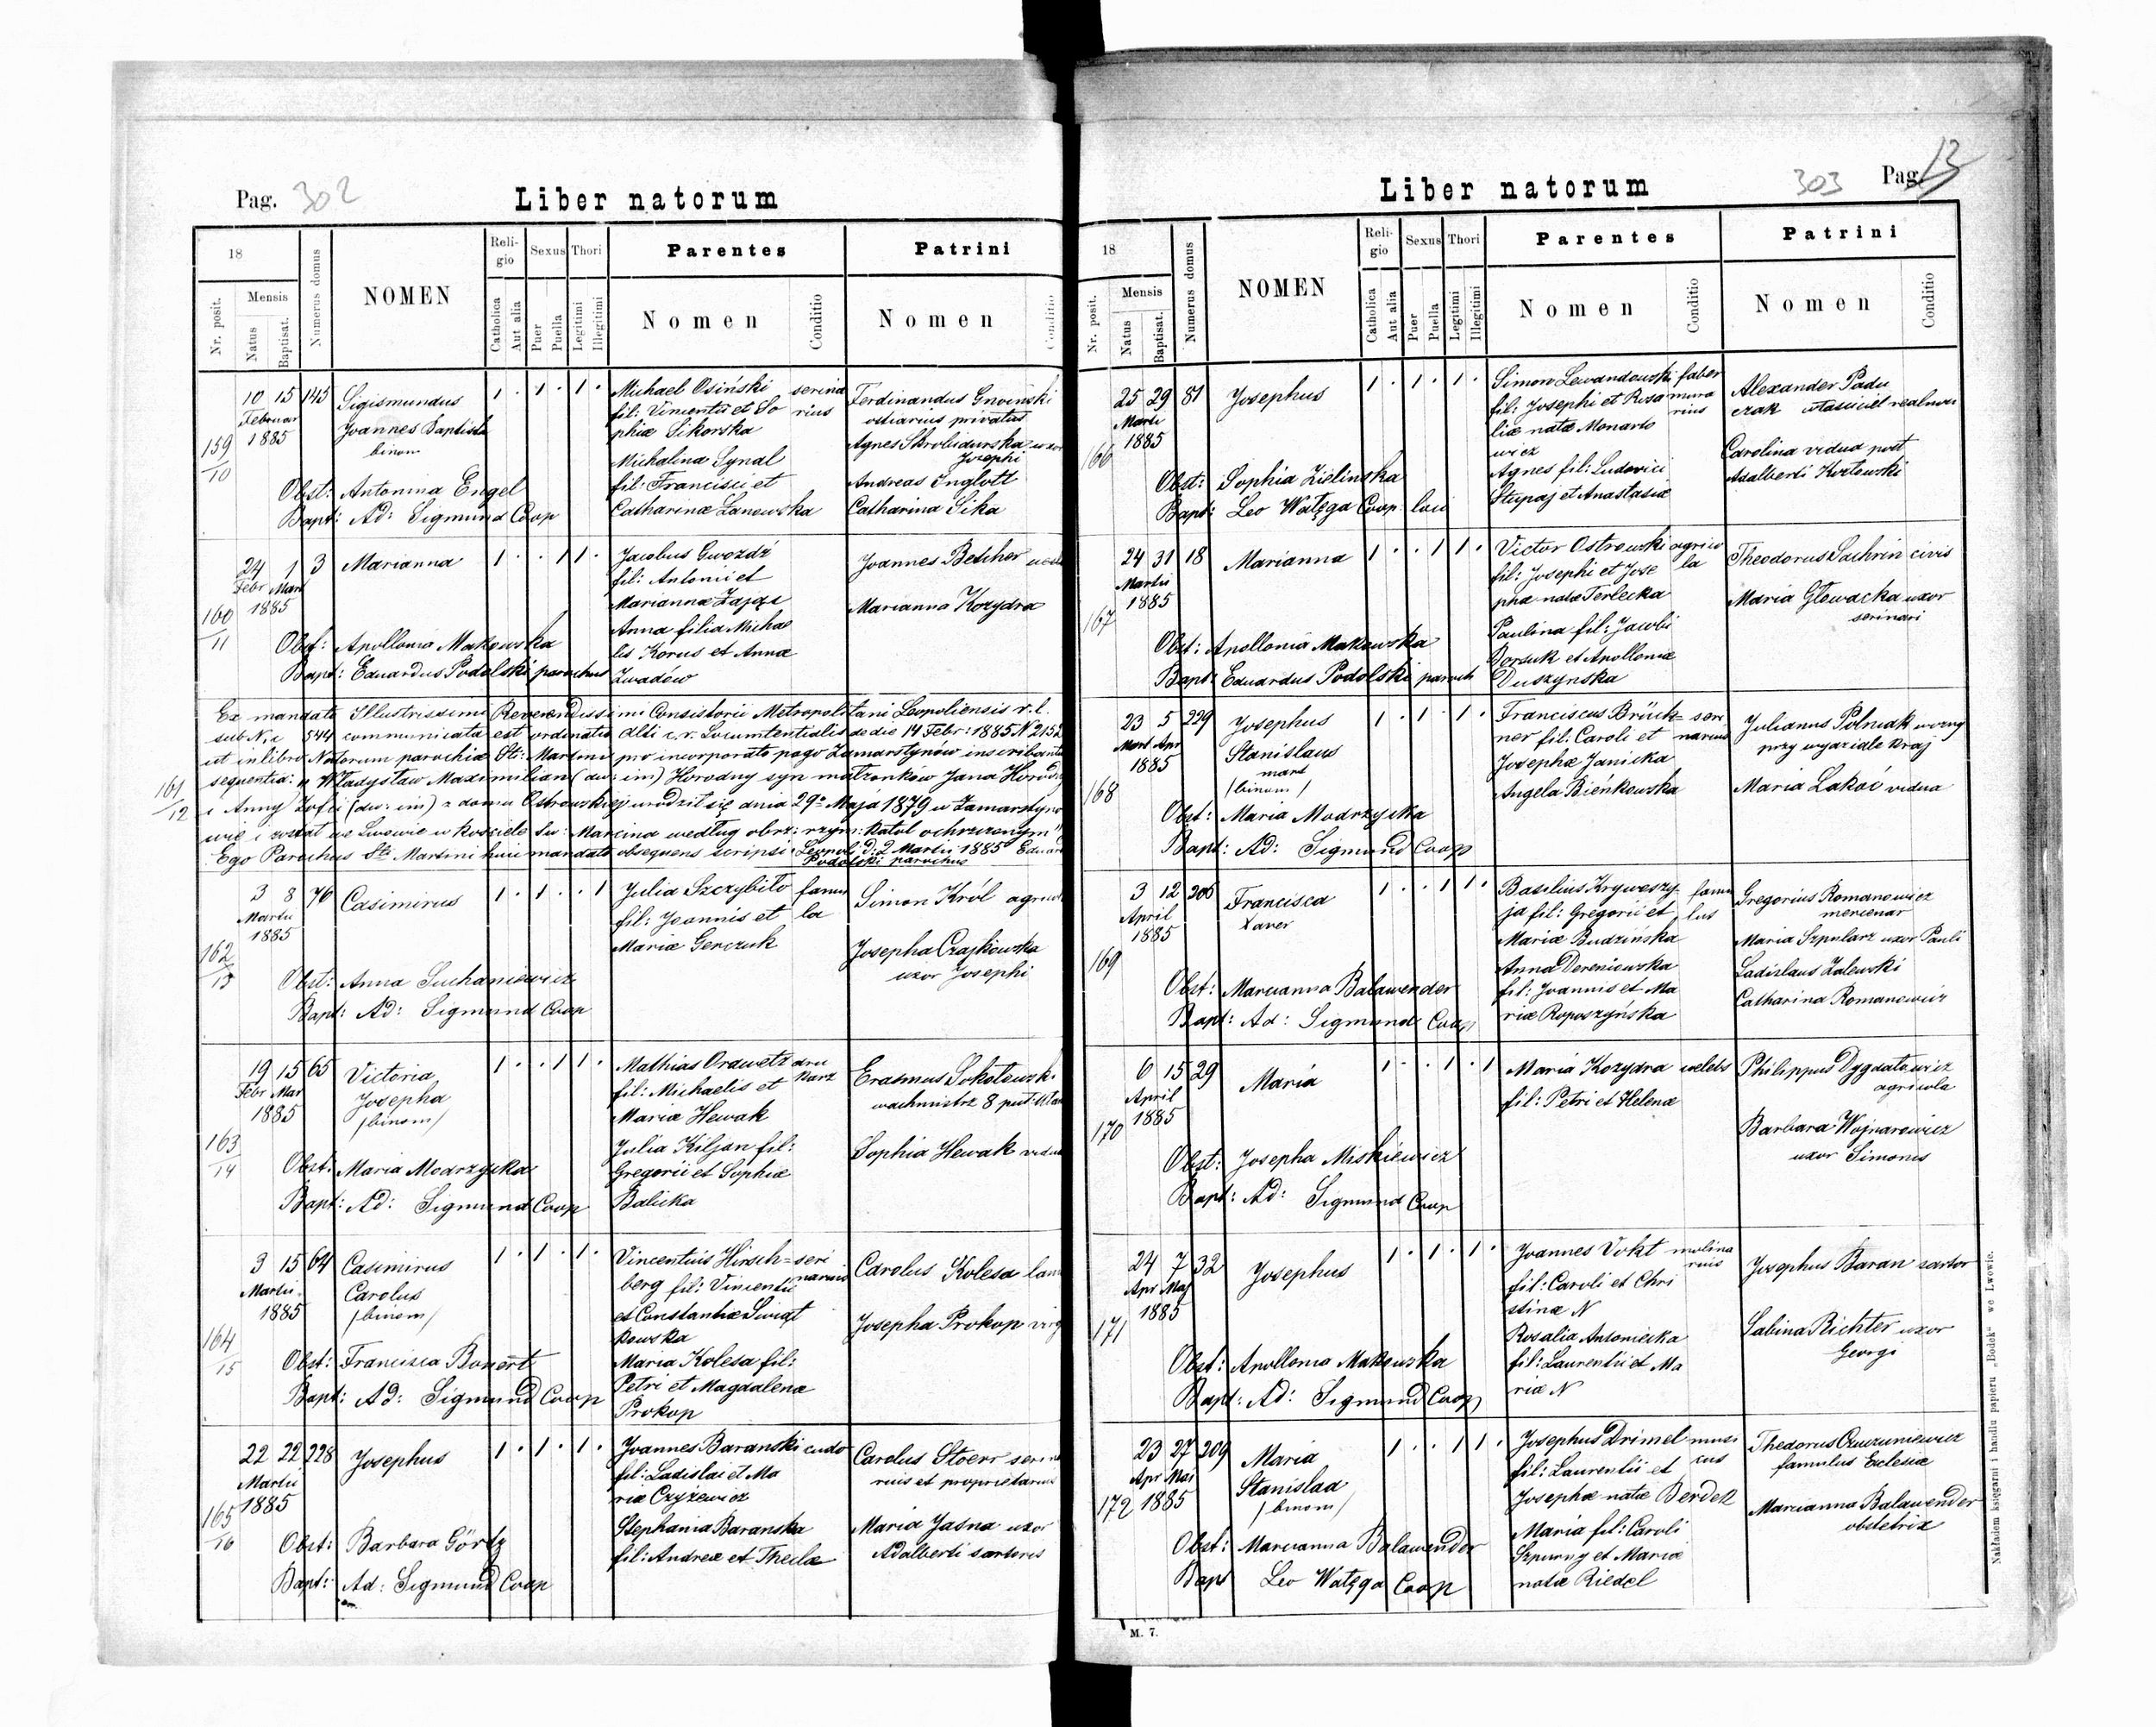 Pag. 302
Liber natorum
18
Nr. posit.
Mensis
Natus
Baptisat.
Numerus domus
NOMEN
Religio
Catholica
Aut alia
Sexus
Puer
Puella
Thori
Legitimi
Illegitimi
Parentes
Nomen
Conditio
Patrini
Nomen
Conditio
159/10
10 15 145
Februar
1885
Sigismundus
Joannes Baptista
binom
1 . 1 . 1 .
Michael Osiński
fil: Vincentii et So
phiæ Sikorska
Michalina Synal
fil: Francisci et
Catharinæ Zanowska
Ferdinandus Gnoinski
ostiarius privatus
Josephi
Andreas Inglott
Catharina Sika
Obst: Antonina Engel
Bapt: Ad: Sigmund Coop
160/11
24 1 3
Febr Mart
1885
Marianna
1 . . 1 1 .
Jacobus Gwozdź
fil: Antonii et
Mariannæ Zając
Anna filia Micha
lis Korus et Annæ
Zwadów
Joannes Betcher
Marianna Kozydra
Obst: Apollonia Makowska
Bapt: Eduardus Podolski parochus
161/12
Ex mandato Illustrissimi Reverendissimi Consistorii Metropolitani Leopoliensis r. l.
sub N; 544 communicata est ordinatio Alti c. r. Locumtentialis de die 14 Febr: 1885 N 2152
ut in libro Natorum parochiæ Sti: Martini pro incorporato pago Zamarstynów inscribantur
sequentia: „Władysław Maximilian (dw: im) Horodny syn małżonków Jana Horod
i Anny Zofii (dw: im) z domu Ostrowskiej urodził się dnia 29º Maja 1879 w Zamarstyno
wie i został we Lwowie w kosciele Św: Marcina według obrz: rzym: katol ochrzczonym"
Ego Parochus Sti Martini huic mandato obsequens scripsi. Leopol d: 2 Martii 1885 Eduard
Podolski parochus
162/13
3 8 76
Martii
1885
Casimirus
1 . 1 . . 1
Julia Szczybiło famu
fil: Joannis et la
Mariæ Gerczuk
Simon Król
Josepha Czajkowska
uxor Josephi
Obst: Anna Suchaniewicz
Bapt: Ad: Sigmund Coop
163/14
19 15 65
Febr Mar
1885
Victoria
Josepha
/binom/
1 . . 1 1 .
Mathias Orawetz dru
fil: Michaelis et karz
Mariæ Hewak
Julia Kiljan fil:
Gregorii et Sophiæ
Balicka
Erasmus Sokołowski
wachmistrz 8
Sophia Hewak
Obst: Maria Modrzycka
Bapt: Ad: Sigmund Coop
164/15
3 15 64
Martii
1885
Casimirus
Carolus
/binom/
1 . 1 . 1 .
Vincentius Hirsch=
berg fil: Vincentii
et Constantiæ Świąt
kowska
Maria Kolesa fil:
Petri et Magdalenæ
Prokop
Carolus Kolesa
Josepha Prokop virg
Obst: Francisca Bonert
Bapt: Ad: Sigmund Coop
165/16
22 22 228
Martii
1885
Josephus
1 . 1 . 1 .
Joannes Baranski
fil: Ladislai et Ma
riæ Czyżewicz
Stephania Baranska
fil: Andreæ et Theclæ
Carolus Stoerr
rius et proprietarius
Maria Jasna uxor
Adalberti sartoris
Obst: Barbara Görtz
Bapt: Ad: Sigmund Coop
Liber natorum
303 Pag. 13
18
Nr. posit.
Mensis
Natus
Baptisat.
Numerus domus
NOMEN
Religio
Catholica
Aut alia
Sexus
Puer
Puella
Thori
Legitimi
Illegitimi
Parentes
Nomen
Conditio
Patrini
Nomen
Conditio
166
25 29 81
Martii
1885
Josephus
1 . 1 . 1 .
Simon Lewandowski faber
fil: Josephi et Rosa mura
liæ natæ Monaro rius
wicz
Agnes fil: Ludovici
Stupaj et Anastasiæ
Alexander Padu
czak
Carolina vidua post
Adalberti Kozłowski
Obst: Sophia Zielinska
Bapt: Leo Watęga Coop
167
24 31 18
Martii
1885
Marianna
1 . . 1 1 .
Victor Ostrowski agrico
fil: Josephi et Jose la
phæ natæ Terlecka
Paulina fil: Jacobi
Borsuk et Apolloniæ
Duszynska
Theodorus Lachrin civis
Maria Głowacka uxor
serinari
Obst: Apollonia Makowska
Bapt: Eduardus Podolski paroch
168
23 5 229
Mart Apr
1885
Josephus
Stanislaus
/binom/
1 . 1 . 1 .
Franciscus Brück= seri
ner fil: Caroli et narius
Josephæ Janicka
Angela Bieńkowska
Julianus Polniak wozny
przy wydziale kraj
Maria Lakoć vidua
Obst: Maria Modrzycka
Bapt: Ad: Sigmund Coop
169
3 12 206
April
1885
Francisca
Xaver
1 . . 1 1 .
Basilius Kryweszy= famu
ja fil: Gregorii et lus
Mariæ Budzińska
Anna Dereniowska
fil: Joannis et Ma
riæ Roposzyńska
Gregorius Romanowicz
mercenar
Maria Szpularz uxor Pauli
Ladislaus Zalewski
Catharina Romanowicz
Obst: Marianna Balawender
Bapt: Ad: Sigmund Coop
170
6 15 29
April
1885
Maria
1 . . 1 . 1
Maria Kozydra celebs
fil: Petri et Helenæ
Philippus Dygdałowicz
agricola
Barbara Wojnarowicz
uxor Simonis
Obst: Josepha Miskiewicz
Bapt: Ad: Sigmund Coop
171
24 7 32
Apr Maj
1885
Josephus
1 . 1 . 1 .
Joannes Vokt molina
fil: Caroli et Chri rius
stinæ N
Rosalia Antoniecka
fil: Laurentii et Ma
riæ N
Josephus Baran sartor
Sabina Richter uxor
Georgi
Obst: Apollonia Makowska
Bapt: Ad: Sigmund Coop
172
23 27 209
Apr Mai
1885
Maria
Stanislaa
/binom/
1 . . 1 1 .
Josephus Drimel musi
fil: Laurentii et cus
Josephæ natæ Berdek
Maria fil: Caroli
Szpurny et Mariæ
natæ Riedel
famulus Eclesiæ
Marianna Balawender
obstetrix
Obst: Marianna Balawender
Bapt Leo Watęga Coop
M. 7.
Nakładem księgarni i handlu papieru „Bodek" we Lwowie.